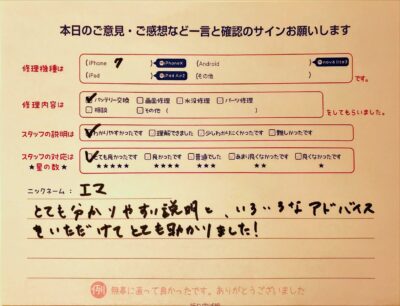 本日のご意見・ご感想など一言と確認のサインお願いします
修理機種は
(iPhone 7 例iPhoneX (Android 例nova lite3
(iPad 例iPad Air2 (その他 )
です。
修理内容は
✓バッテリー交換 □画面修理 □水没修理 □パーツ修理
□相談 □その他 ( )
をしてもらいました。
スタッフの説明は ✓わかりやすかったです □理解できました □少しわかりにくかったです □難しかったです
スタッフの対応は ✓とても良かったです □良かったです □普通でした □あまり良くなかったです □良くなかったです
★星の数★ ★★★★★ ★★★★ ★★★ ★★ ★
ニックネーム: エマ
とても分かりやすい説明と、いろいろなアドバイス
をいただけてとても助かりました!
例 無事に直って良かったです。ありがとうございました